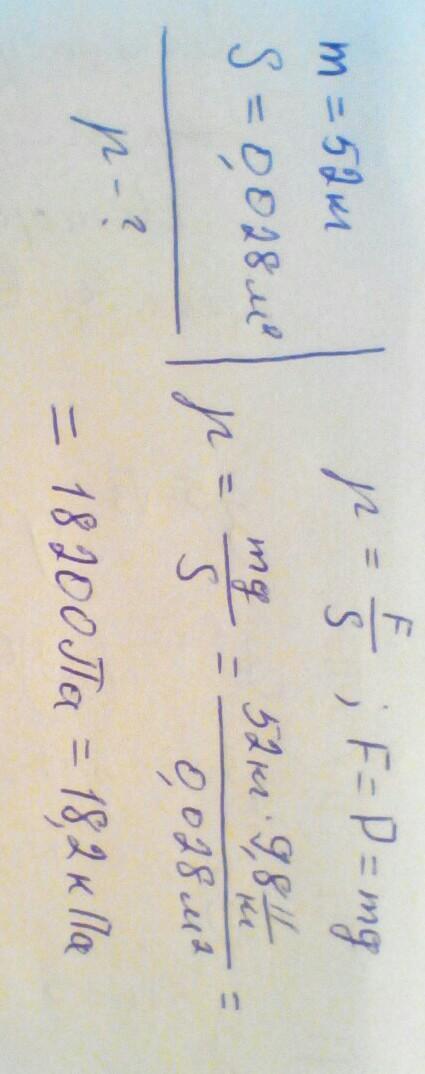 m = 52 кг
S = 0,028 м²
p - ?
p = F/S ; F = P = mg
p = mg/S = 52 кг · 9,8 Н/кг / 0,028 м² =
= 18200 Па = 18,2 кПа